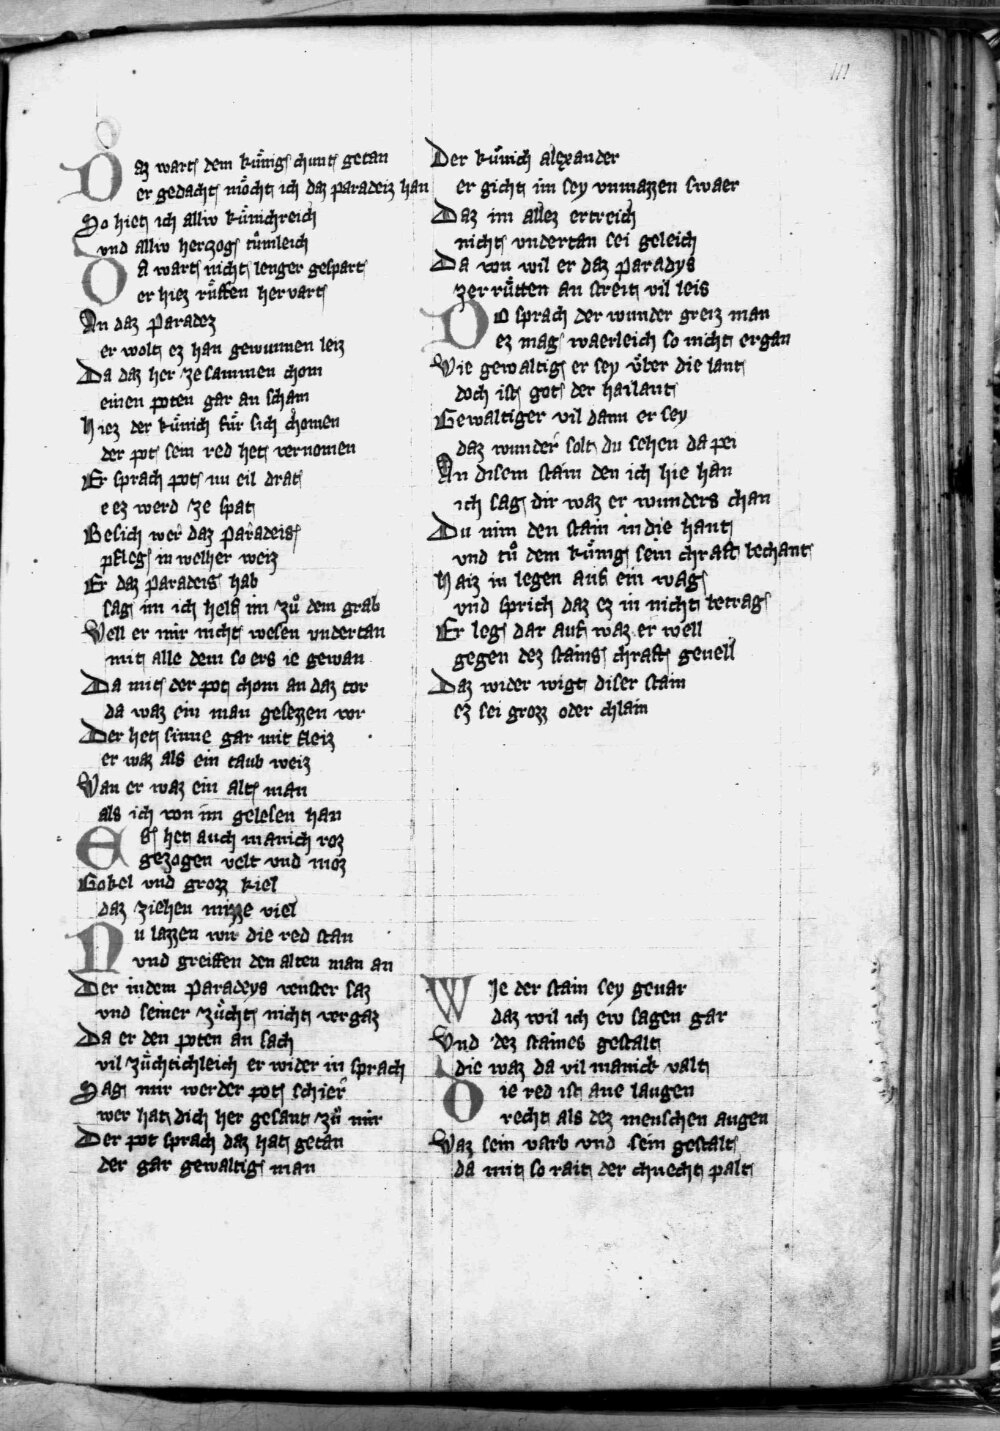 111
Daz wart dem kuͤnig chunt getan
er gedacht moͤcht ich daz paradeiz han
So hiet ich alliv kuͤnichreich
vnd alliv herczog tuͤmleich
Da wart nicht lenger gespart
er hiez ruͤffen hervart
An daz paradez
er wolt ez han gewunnen leiz
Da daz her ze sammen chom
einen poten gar an scham
Hiez der kuͤnich fuͤr sich chomen
der pot sein red het vernomen
Er sprach pot nu eil drat
e ez werd ze spat
Besich wer daz paradeis
pfleg in welher weiz
Er daz paradeis hab
sag im ich helf im zuͦ dem grab
Well er mir nicht wesen vndertan
mit alle dem so ers ie gewan
Da mit der pot chom an daz tor
da waz ein man gesezzen vor
Der het sinne gar mit fleiz
er waz als ein taub weiz
Wan er waz ein alt man
als ich von im gelesen han
Es het auch manich roz
gezogen velt vnd moz
Gokel vnd grozz kiel
daz ziehen muͤzze viel
Nu lazzen wir die red stan
vnd greiffen den alten man an
Der in dem paradeys venster saz
vnd seiner zuͤcht nicht vergaz
Da er den poten an sach
vil zuͤchtichleich er wider in sprach
Sag mir werder pot schier
wer hat dich her gesant zuͦ mir
Der pot sprach daz hat getan
der gar gewaltig man
Der kuͤnich alexander
er gicht im sey vnmazzen swaer
Daz im allez ertreich
nicht vndertan sei geleich
Da von wil er daz paradys
zerruͤtten an streit vil leis
Do sprach der wunder greiz man
ez mag waerleich so nicht ergan
Wie gewaltig er sey uͤber die lant
doch ist got der hailant
Gewaltiger vil dann er sey
daz wunder solt du sehen da pei
An disem stain den ich hie han
ich sag dir waz er wunders chan
Du nim den stain in die hant
vnd tuͦ dem kuͤnig sein chraft bechant
Haiz in legen auf ein wag
vnd sprich daz ez in nicht betrag
Er leg dar auf waz er well
gegen dez stains chraft gevell
Daz wider wigt diser stain
ez sei grozz oder chlain
Wie der stain sey gevar
daz wil ich ew sagen gar
Vnd dez staines gestalt
die waz da vil manick valt
Die red ist ane laugen
recht als dez menschen augen
Waz sein varb vnd sein gestalt
da mit so rait der chnecht palt